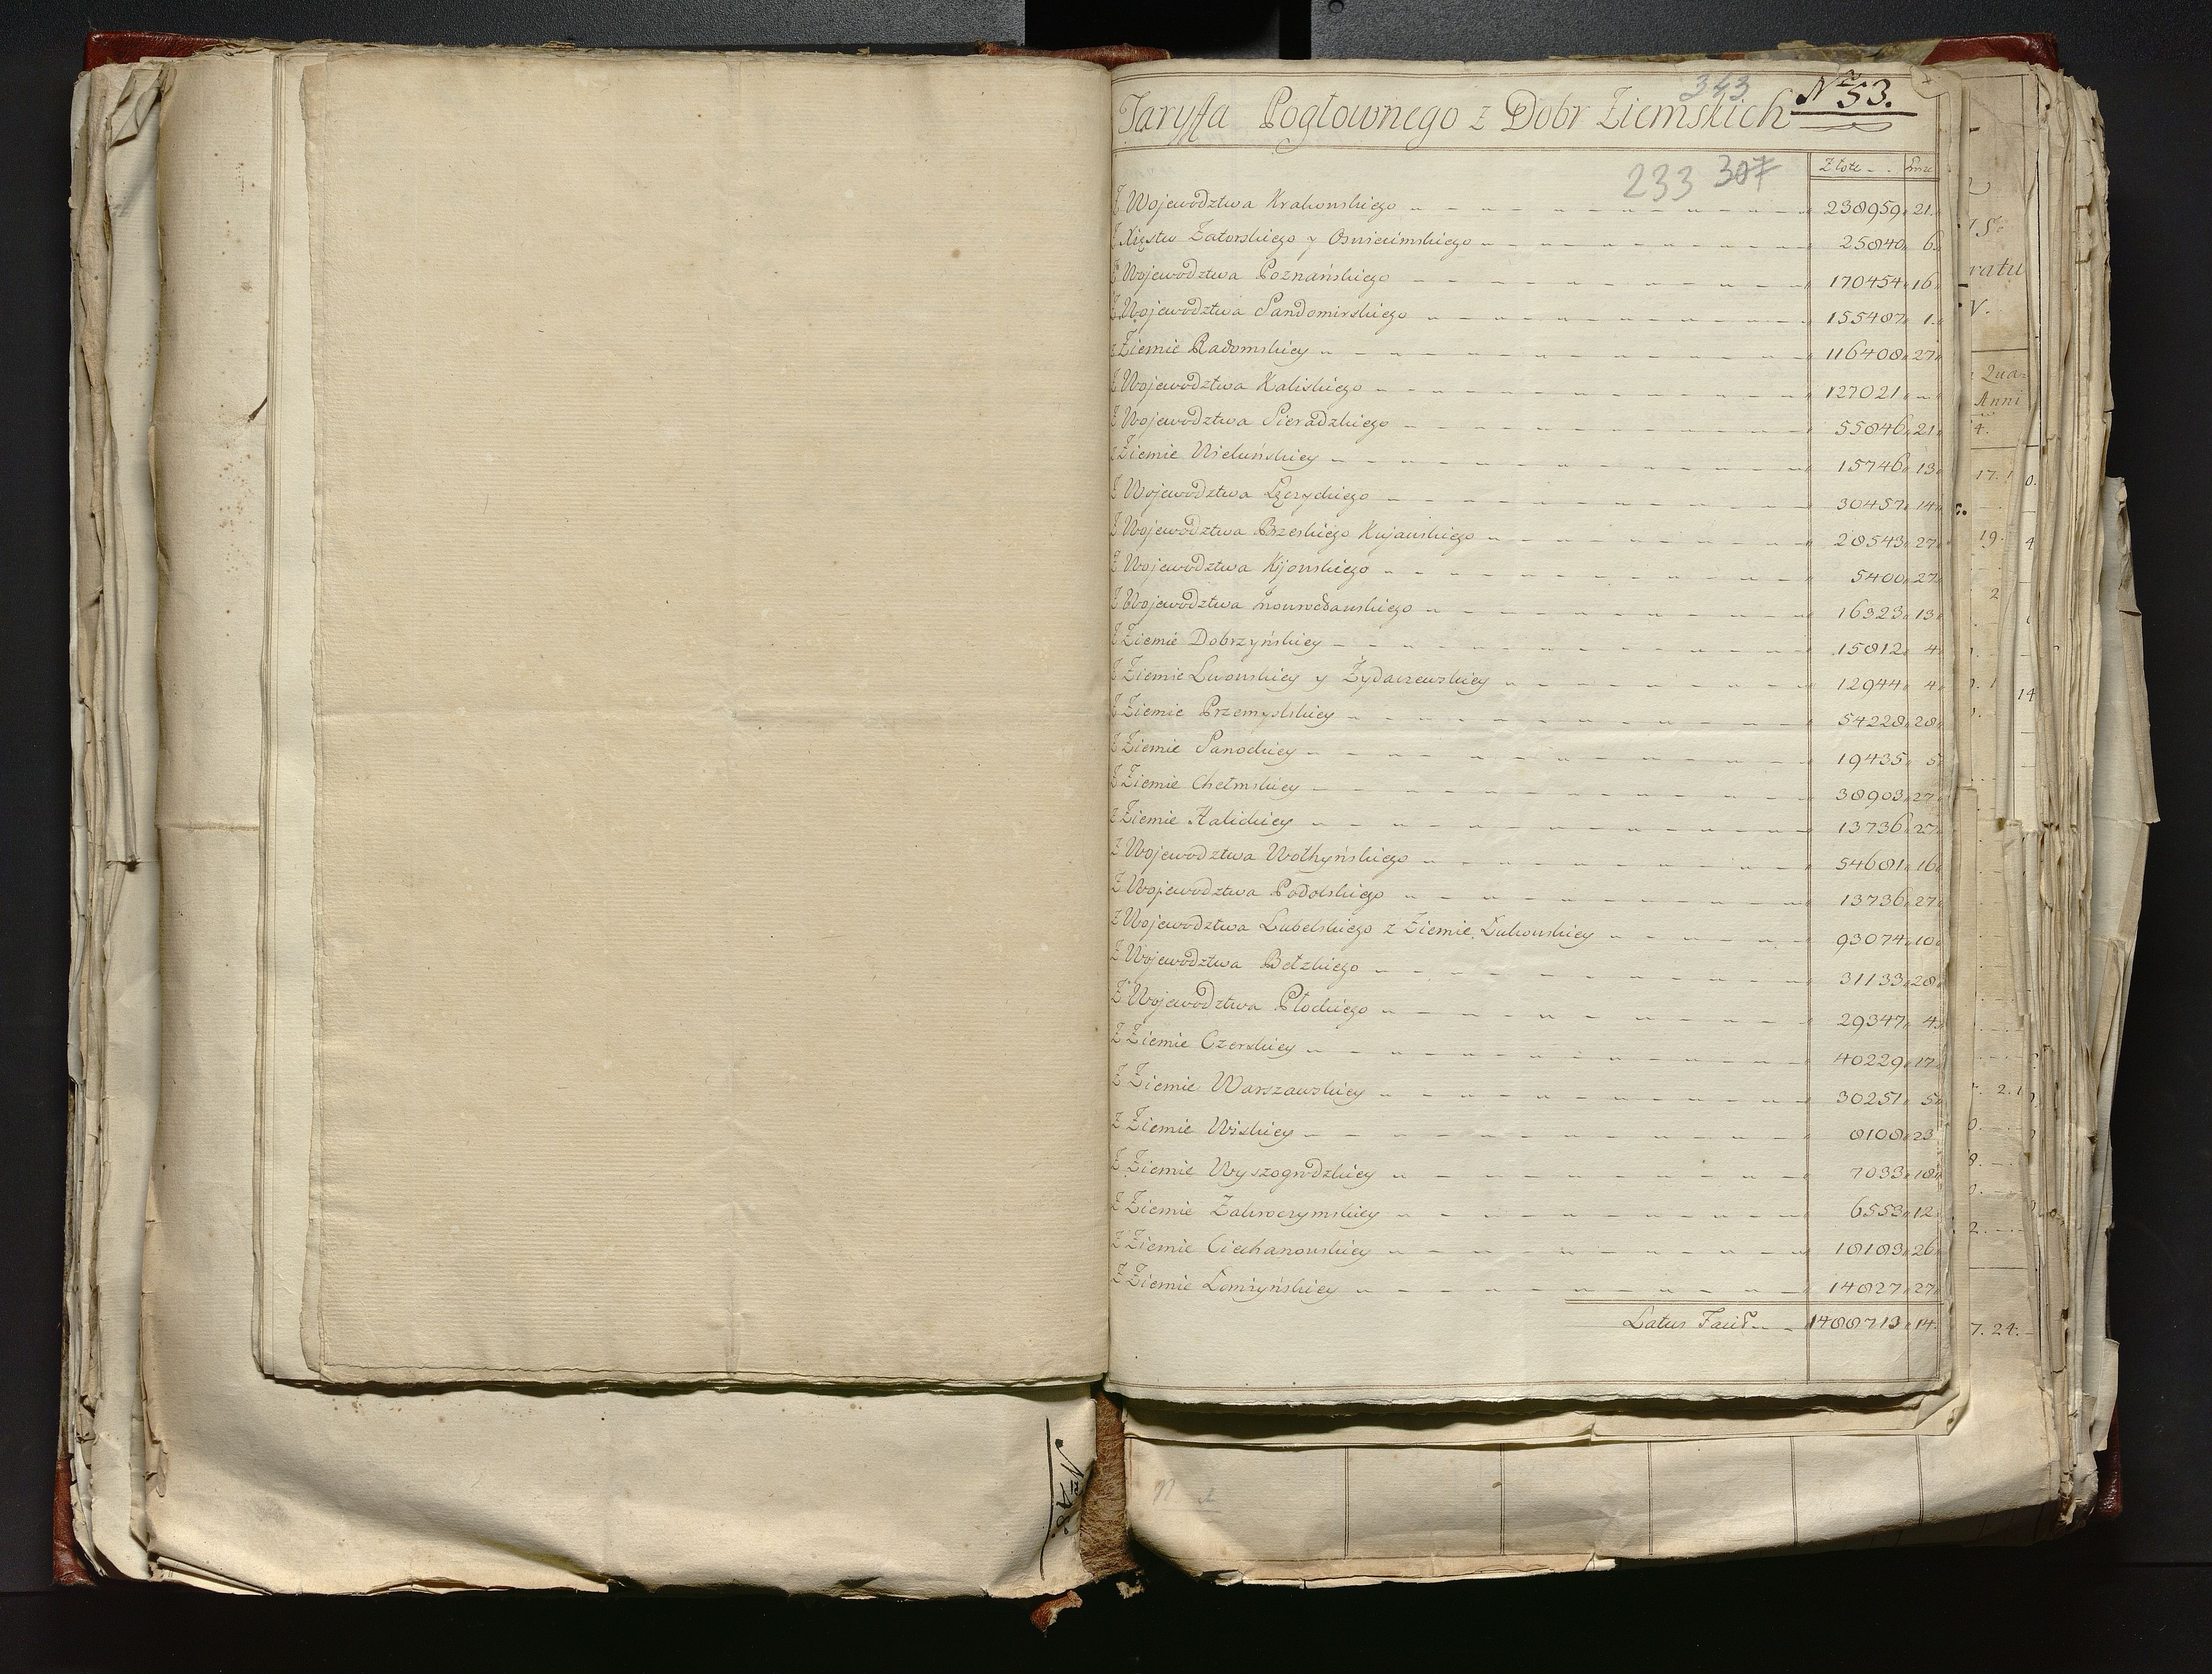 343 No 53.
Taryffa Pogłownego z Dobr Ziemskich
233 307
Złote Grosze
Z Województwa Krakowskiego 238959 21
Z Xięstw Zatorskiego y Oswiecimskiego 25840 6
Z Województwa Poznańskiego 170454 16
Z Województwa Sandomirskiego 155487 1
z Ziemie Radomskiey 116408 27
Z Województwa Kaliskiego 127021 „
Z Województwa Sieradzkiego 55846 21
z Ziemie Wieluńskiey 15746 13
Z Województwa Łęczyckiego 30457 14
Z Województwa Brzeskiego Kujawskiego 28543 27
Z Województwa Kijowskiego 5400 27
Z Województwa Inowrocławskiego 16323 13
Z Ziemie Dobrzyńskiey 15812 4
Z Ziemie Lwowskiey y Żydaczewskiey 12944 4
Z Ziemie Przemyslskiey 54228 28
Z Ziemie Sanockiey 19435 5
Z Ziemie Chełmskiey 38903 27
z Ziemie Halickiey 13736 27
Z Województwa Wołhyńskiego 54681 16
Z Województwa Podolskiego 13736 27
z Województwa Lubelskiego z Ziemie Łukowskiey 93074 10
Z Województwa Bełzkiego 31133 28
Z Województwa Płockiego 29347 4
Z Ziemie Czerskiey 40229 17
Z Ziemie Warszawskiey 30251 5
Z Ziemie Wiskiey 8108 23
Z Ziemie Wyszogrodzkiey 7033 18
Z Ziemie Zakroczymskiey 6553 12
Z Ziemie Ciechanowskiey 18183 26
Z Ziemie Łomżyńskiey 14827 27
Latus Facit 1488713 14